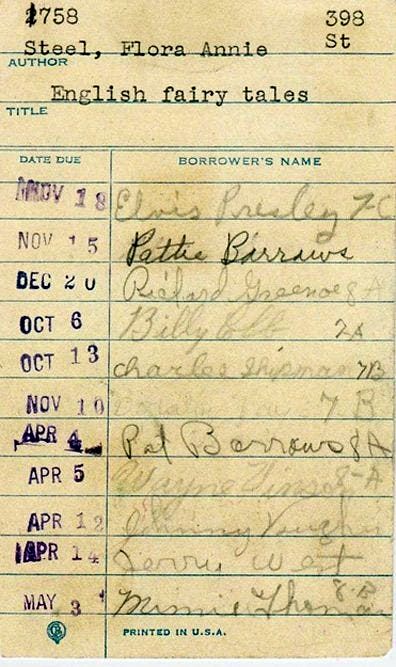 2758 398
Steel, Flora Annie St
AUTHOR
English fairy tales
TITLE
DATE DUE BORROWER'S NAME
NOV 18 Elvis Presley 7-C
NOV 15 Pattie Barrows
DEC 20 Richard 8 A
OCT 6 Billy 7A
OCT 13 Charles Shipman 7B
NOV 10 7 B
APR 4 Pat Barrows 8A
APR 5 Wayne 8-A
APR 12 Johnny Vaughn
APR 14 Jerry West
MAY 3 Minnie Thomas 8-B
PRINTED IN U.S.A.